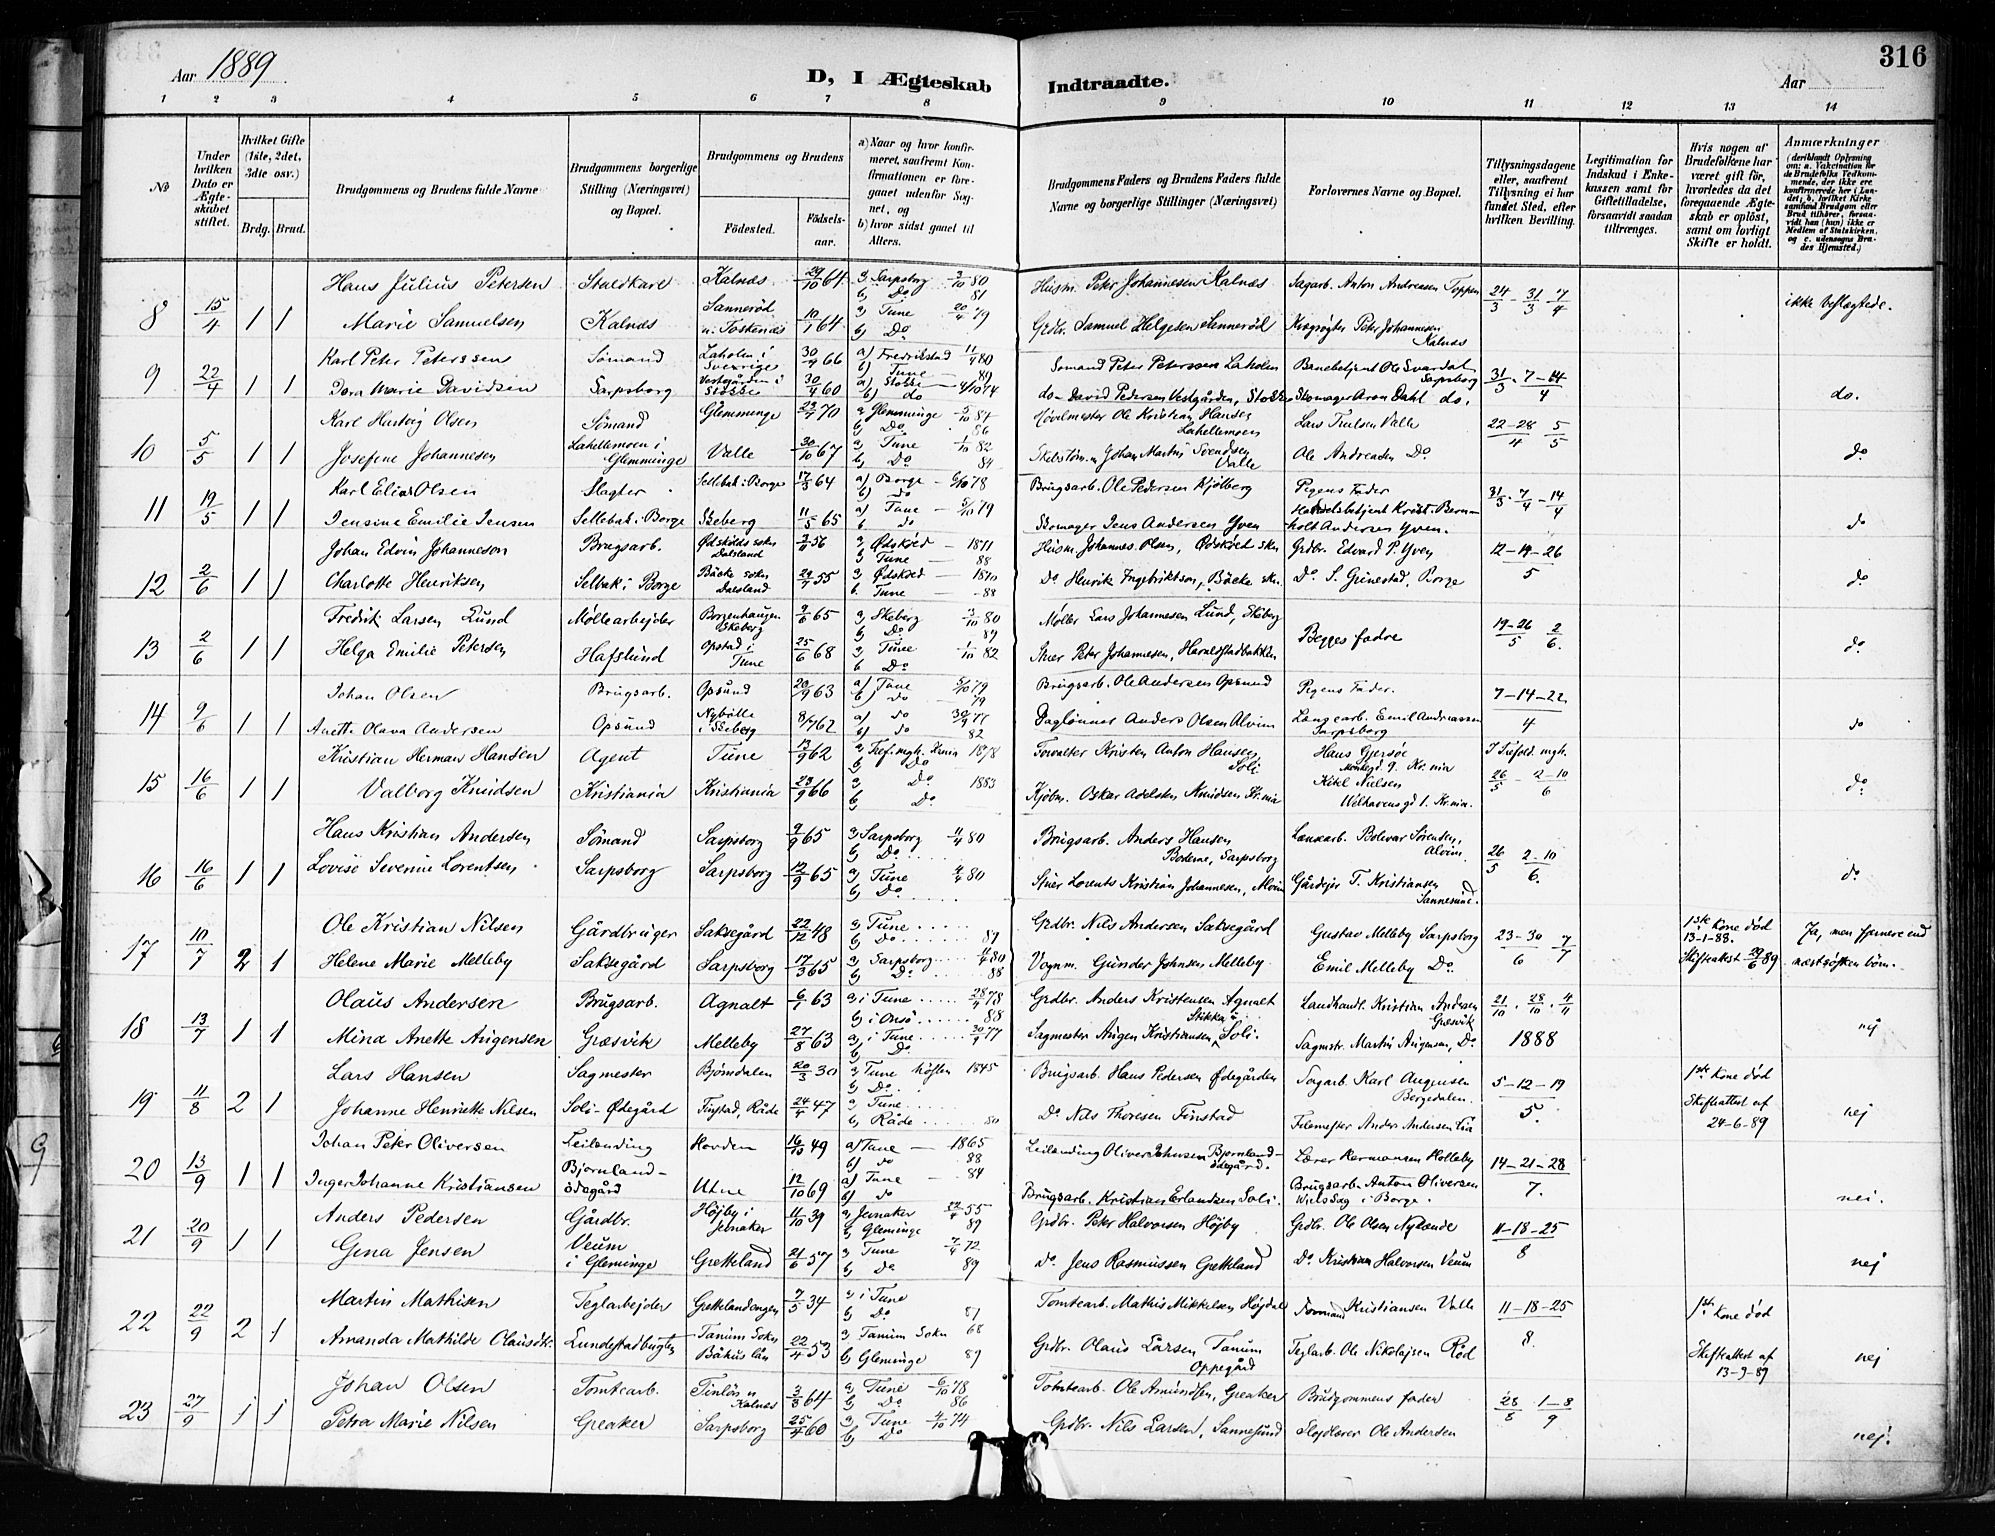 316
Aar 1889
D, I Ægteskab Indtraadte.
Aar
1 2 3 4 5 6 7 8 9 10 11 12 13 14
No
Under hvilken Dato er Ægteskabet stiftet.
Hvilket Gifte (1ste, 2det, 3die osv.)
Brdg. Brud.
Brudgommens og Brudens fulde Navne
Brudgommens borgerlige Stilling (Næringsvei) og Bopæl.
Brudgommens og Brudens
Fødested.
Fødselsaar.
a) Naar og hvor konfirmeret, saafremt Konfirmationen er foregaaet udenfor Sognet, og
b) hvor sidst gaaet til Alters.
Brudgommens Faders og Brudens Faders fulde Navne og borgerlige Stillinger (Næringsvei)
Forlovernes Navne og Bopæl.
Tillysningsdagene eller, saafremt Tillysning ei har fundet Sted, efter hvilken Bevilling.
Legitimation for Indskud i Enkekassen samt for Giftetilladelse, forsaavidt saadan tiltrænges.
Hvis nogen af Brudefolkene har været gift før, hvorledes da det foregaaende Ægteskab er opløst, samt om lovligt Skifte er holdt.
Anmærkninger
8 15/4 1 1
Hans Julius Petersen Staldkarl Kalnæs 29/10 64 a) Sarpsborg 3/10 80 b) Do 81 Husm. Peter Johannesen Kalnæs Sagarb. Anton Andreasen Toppen 24/3 - 31/3 7/4 ikke beslægtede.
Marie Samuelsen Kalnæs Sannerød u. Toskenæs 10/1 64 a) Tune 20/4 79 b) Do Grdbr. Samuel Helgesen Sennerød Peter Johannesen Kalnæs
9 22/4 1 1
Karl Peter Peterssen Sømand Laholm i Sverrige 30/9 66 a) Fredrikstad 11/4 80 b) Tune 89 Sømand Peter Peterssen Laholm Ole Svardal Sarpsborg 31/3 - 7-14/4 do.
Dora Marie Davidsen Sarpsborg Vestgården i Stokke 30/4 60 a) Stokke 4/10 74 b) do do David Pedersen Vestgården, Stokke Skomager Aron Dahl do.
10 5/5 1 1
Karl Hartvig Olsen Sømand Glemminge 29/7 70 a) Glemminge 5/10 84 b) Do 86 Hjulmester Ole Kristian Hansen Lahellemoen Lars Truelsen Valle 22-28/4 5/5 do
Josefine Johannesen Lahellemoen i Glemminge Valle 30/10 67 a) Tune 1/10 82 b) Do 84 Johan Martin Svendsen Valle Ole Andreasen Do
11 19/5 1 1
Karl Elias Olsen Slagter Sellebak i Borge 17/3 64 a) Borge 6/10 78 b) do Brugsarb. Ole Pedersen Kjølberg Pigens Fader 31/3 - 7/4 - 14/4 do
Jensine Emilie Jensen Sellebak i Borge Skeberg 11/5 65 a) Tune 5/10 79 b) do Skomager Jens Andersen Yven Handelsbetjent Krist. Bernholt Andersen Yven.
12 2/6 1 1
Johan Edvin Johanneson Brugsarb. Ødskölds sokn Dalsland 2/11 56 a) Ødsköld 1871 b) Tune 88 Husm. Johannes Olsen, Ødsköld skn Grdbr. Edvard P. Yven 12-19-26/5 do
Charlotte Henriksen Selbak i Borge Bäcke sokn Dalsland 29/7 55 a) Ødsköld 1870 b) Tune 88 Do Henrik Ingebriktson, Bäcke skn. Do S. Grinestad, Borge
13 2/6 1 1
Fredrik Larsen Lund Møllearbejder Borgenhaugen Skeberg 9/6 65 a) Skeberg 3/10 80 b) Do 89 Møller Lars Johannesen Lund, Skeberg Begges fædre 19-26/5 2/6. do
Helga Emilie Petersen Hafslund Opstad i Tune 25/6 68 a) Tune 1/10 82 b) Do Peter Johannesen,
14 9/6 1 1
Johan Olsen Brugsarb. Opsund 20/9 63 a) Tune 5/10 79 b) do 79 Brugsarb. Ole Andersen Opsund Pigens Fader. 7-14-22/4 do
Anette Olava Andersen Opsund Nybølle i Skeberg 8/7 62 a) do 30/9 77 b) do 82 Daglønnet Anders Olsen Alvim Emil Andreassen Sarpsborg
15 16/6 1 1
Kristian Herman Hansen Agent Tune 13/9 62 a) Tref. mgh. Krnia 1878 b) Do Forvalter Kristen Anton Hansen Soli Hans Gjersøe gd 9. Kr.nia I Trefold. mgh. 26/5 - 2-10/6 do
Valborg Knudsen Kristiania Kristiania 23/9 66 a) Do 1883 b) Do Kjøbm. Oskar Adelsten Knudsen Kr.nia Kitil Nielsen Welhavensgd 1. Kr.nia.
16 16/6 1 1
Hans Kristian Andersen Sømand Sarpsborg 9/9 65 a) Sarpsborg 11/4 80 b) Do Brugsarb. Anders Hansen Boderne, Sarpsborg Bolevar Sørensen, Alvim. 26/5 2-10/6. do
Lovise Severine Lorentsen Sarpsborg Sarpsborg 12/9 65 a) Tune 4/4 80 b) Do Lorents Kristian Johannesen, Alvim Gårdejer T. Kristiansen Sannesund.
17 10/7 2 1
Ole Kristian Nilsen Gårdbruger Saksegård 22/12 48 a) Tune b) Do 87 Grdbr. Nils Andersen Saksegård Gustav Melleby Sarpsborg 23-30/6 7/7 1ste Kone død 13-1-88. Skifteattest 29/6 89 Ja, men fjernere end næstsøsken børn.
Helene Marie Melleby Saksegård Sarpsborg 17/3 65 a) Sarpsborg 11/4 80 b) Do 88 Vognm. Gunder Johnsen Melleby Emil Melleby Do.
18 13/7 1 1
Olaus Andersen Brugsarb. Agnalt 6/1 63 a) i Tune 28/4 78 b) i Onsö 88 Grdbr. Anders Kristensen Agnalt Landhandl. Kristian Andersen Græsvik 21/10 . 28/10 . 4/11 1888 nej
Mina Anette Augensen Græsvik Melleby 27/8 63 a) i Tune 30/9 77 b) Do Sagmester Augen Kristiansen, Stikka u. Soli. Sagmstr. Martin Augensen, Do
19 11/8 2 1
Lars Hansen Sagmester Bjørndalen 20/3 30 a) Tune høsten 1845 b) Do. Brugsarb. Hans Pedersen Ødegården Sagarb. Karl Augensen Bergedalen. 5-12-19/5. 1ste Kone død Skifteattest af 24-6-89 nej
Johanne Henriette Nilsen Soli-Ødegård Finstad, Råde 24/4 47 a) Tune b) Råde 80 Do Nils Thoresen Finstad Anders Andersen Lia
20 13/9 1 1
Johan Peter Oliversen Leilending Hovden 16/10 49 a) Tune 1865 b) do 88 Leilending Oliver Johnsen Bjørnland-ödegård. Lærer Hermansen Holleby 14-21-28/7. nei.
Inger Johanne Kristiansen Bjørnland-ödegård Utne 12/10 69 a) Tune 84 b) do Brugsarb. Kristian Erlandsen Soli. Brugsarb. Anton Oliversen Nilsdag i Borge.
21 20/9 1 1
Anders Pedersen Gårdbr. Højby i Jevnaker 11/10 39 a) Jevnaker 22/4 55 b) Gleminge 89 Grdbr. Peter Halvorsen Højby Grdbr. Ole Olsen Nylænde 11-18-25/8 nej
Gina Jensen Veum i Gleminge Gretteland 21/6 57 a) Tune 7/4 72 b) Do 89 Do Jens Rasmussen Gretteland Do Kristian Halvorsen Veum
22 22/9 2 1
Martin Mathisen Teglarbejder Grettelandengen 7/5 34 a) i Tune b) Do 87 Tomtearb. Mathis Mikkelsen Højdal Formand Kristiansen Valle 11-18-25/8. 1ste Kone død Skifteattest af 13-9-89 nej
Amanda Mathilde Olausdtr. Lundestadbugten Tanum Sokn Båhus län 22/4 53 a) Tanum Sokn 68 b) Gleminge 89 Grdbr. Olaus Larsen Tanum Oppegård Teglarb. Ole Nikolajsen Rød
23 27/9 1 1
Johan Olsen Tomtearb. Tinløs u. Kalnæs 3/3 64 a) Tune 6/10 78 b) Do 86 Tomtearb. Ole Amundsen, Greaker Brudgommens fader 28/8 1-8/9 nej.
Petra Marie Nilsen Greaker Sarpsborg 25/4 60 a) Tune 4/10 74 b) Do Grdbr. Nils Larsen, Sannesund Sløjdlærer Ole Andersen